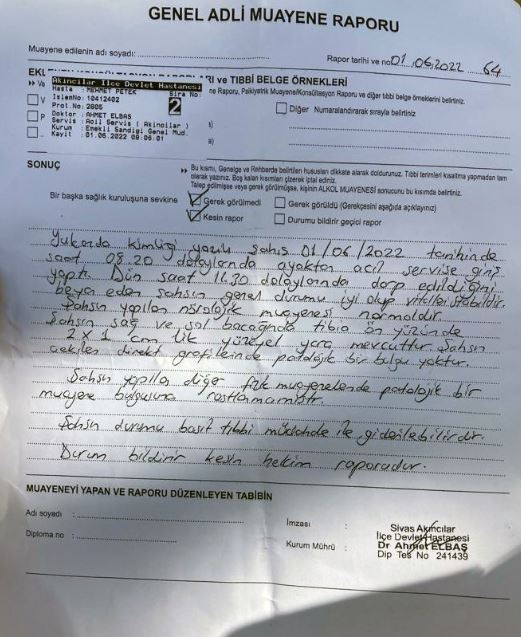 GENEL ADLİ MUAYENE RAPORU
Muayene edilenin adı soyadı:
Rapor tarihi ve no 01 /06/2022 64
VE TIBBİ BELGE ÖRNEKLERİ
Akıncılar Ilce Devlet Hastanesi
Hasta : MEHMET PETEK
IslemNo: 10412402 Sıra No:
Prot.No: 2806 2
Doktor : AHMET ELBAŞ
Servis : Acil Servis ( Akincilar )
Kurum : Emekli Sandigi Genel Mud.
Kayit : 01.06.2022 08:06:01
Raporu, Psikiyatrik Muayene/Konsültasyon Raporu ve diğer tıbbi belge örneklerini belirtiniz.
Diğer Numaralandırarak sırayla belirtiniz
SONUÇ
Bu kısmı, Genelge ve Rehberde belirtilen hususları dikkate alarak doldurunuz. Tıbbi terimleri kısaltma yapmadan tam
olarak yazınız. Boş kalan kısımları çizerek iptal ediniz.
Talep edilmişse veya gerek görülmüşse, kişinin ALKOL MUAYENESİ sonucunu bu kısımda belirtiniz.
Bir başka sağlık kuruluşuna sevkine Gerek görülmedi Gerek görüldü (Gerekçesini aşağıda açıklayınız)
Kesin rapor Durumu bildirir geçici rapor
Yukarıda kimliği yazılı şahıs 01/06/2022 tarihinde
saat 08.20 dolaylarında ayaktan acil servise giriş
yaptı. Dün saat 16.30 dolaylarında darp edildiğini
beyan eden şahsın genel durumu iyi olup vitalleri stabildir.
Şahsın yapılan nörolojik muayenesi normaldir.
Şahsın sağ ve sol bacağında tibia ön yüzünde
2 x 1 cm lik yüzeyel yara mevcuttur. Şahsın
çekilen direkt grafilerinde patolojik bir bulgu yoktur.
Şahsın yapılan diğer fizik muayenelerinde patolojik bir
muayene bulgusuna rastlanmamıştır.
Şahsın durumu basit tıbbi müdahale ile giderilebilirdir.
Durum bildirir kesin hekim raporudur.
MUAYENEYİ YAPAN VE RAPORU DÜZENLEYEN TABİBİN
Adı soyadı :
Diploma no :
İmzası :
Kurum Mührü :
Sivas Akıncılar
İlçe Devlet Hastanesi
Dr Ahmet ELBAŞ
Dip Tes No 241439